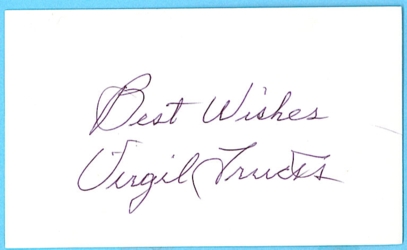 Best Wishes
Virgil Trucks